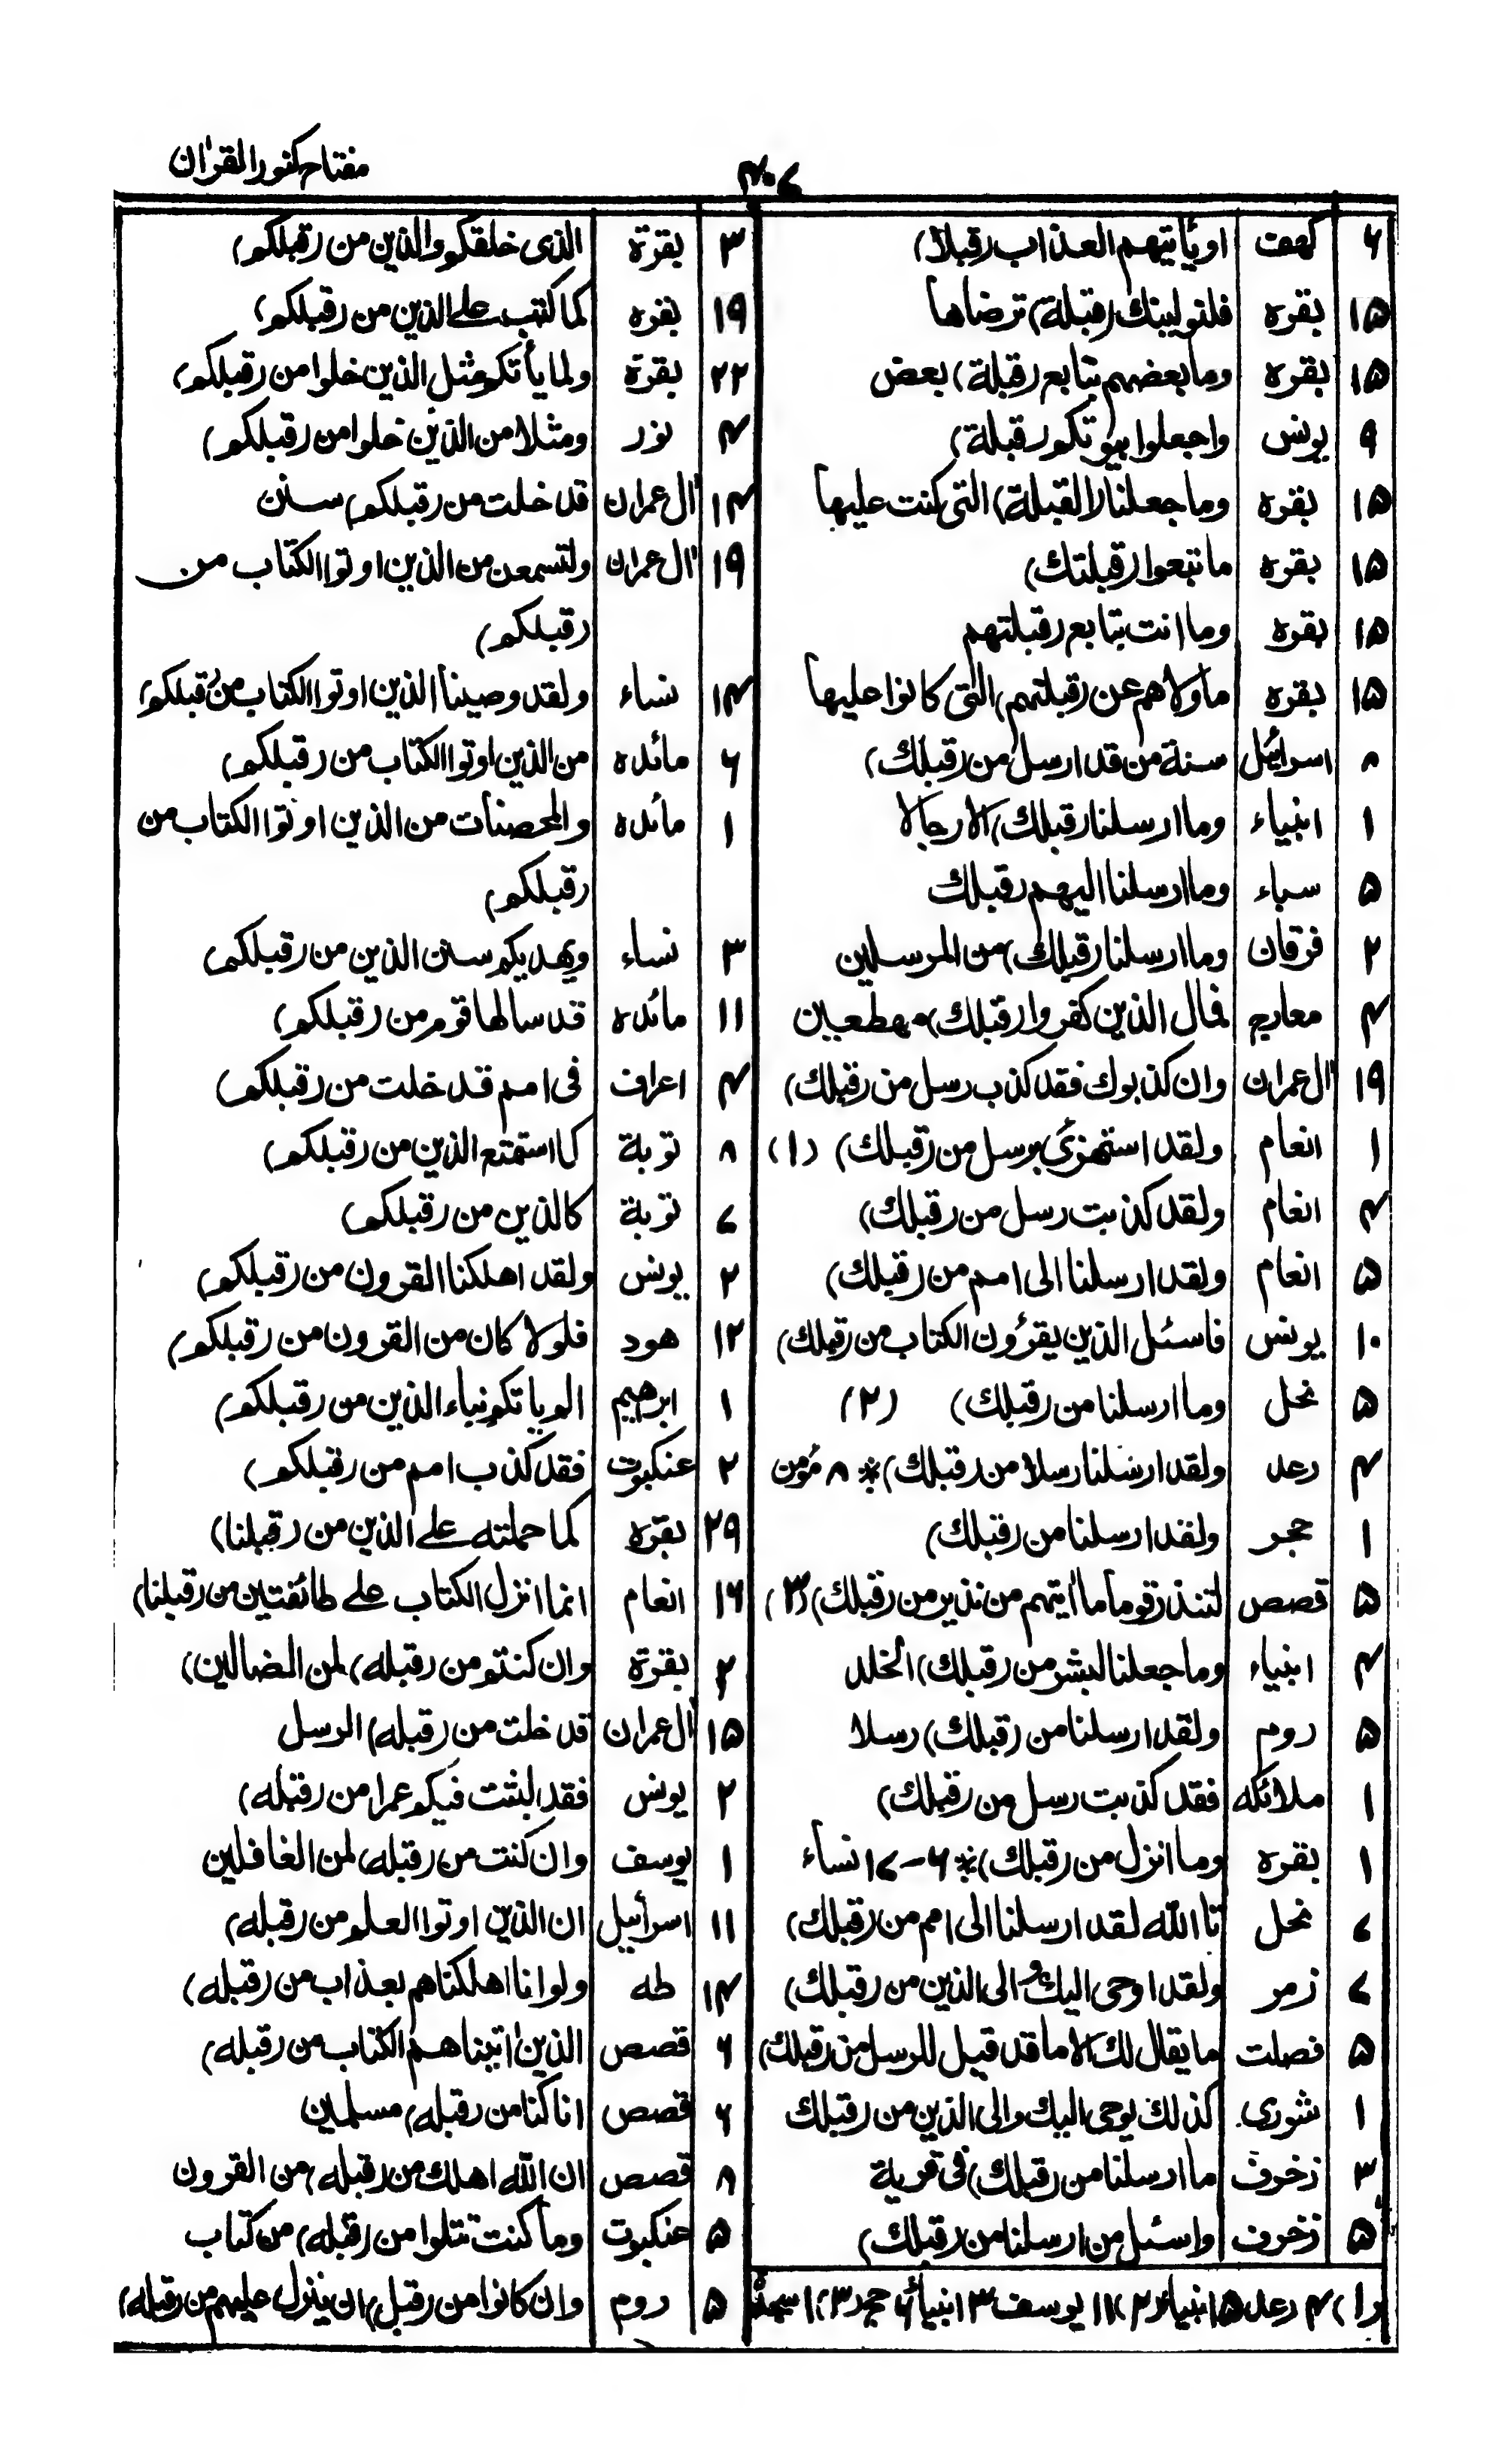 مفتاح كنوز القرآن
۴۰۷
۶ كهف او يأتيهم العذاب (قبلا)
۱۵ بقره فلنولينك (قبلة) ترضاها
۱۵ بقره وما بعضهم بتابع (قبلة) بعض
۹ يونس واجعلوا بيوتكم (قبلة)
۱۵ بقره وما جعلنا (القبلة) التى كنت عليها
۱۵ بقره ما تبعوا (قبلتك)
۱۵ بقره وما انت بتابع (قبلتهم
۱۵ بقره ما ولاهم عن (قبلتهم) التى كانوا عليها
۸ اسرائيل سنة من قد ارسل من (قبلك)
۱ انبياء وما ارسلنا (قبلك) الا رجالا
۵ سباء وما ارسلنا اليهم (قبلك
۲ فرقان وما ارسلنا (قبلك) من المرسلين
۴ معارج فمال الذين كفروا (قبلك) مهطعين
۱۹ آل عمران وان كذبوك فقد كذب رسل من (قبلك)
۱ انعام ولقد استهزئ برسل من (قبلك) (۱)
۴ انعام ولقد كذبت رسل من (قبلك)
۵ انعام ولقد ارسلنا الى امم من (قبلك)
۱۰ يونس فاسئل الذين يقرؤن الكتاب من (قبلك)
۵ نحل وما ارسلنا من (قبلك) (۲)
۴ رعد ولقد ارسلنا رسلا من (قبلك) * ۸ مؤمن
۱ حجر ولقد ارسلنا من (قبلك)
۵ قصص لتنذر قوما ما أتيهم من نذير من (قبلك) (۳)
۴ انبياء وما جعلنا لبشر من (قبلك) الخلد
۵ روم ولقد ارسلنا من (قبلك) رسلا
۱ ملائكه فقد كذبت رسل من (قبلك)
۱ بقره وما انزل من (قبلك) * ۶-۱۷ نساء
۷ نحل تا الله لقد ارسلنا الى امم من (قبلك)
۷ زمر ولقد اوحى اليك و الى الذين من (قبلك)
۵ فصلت ما يقال لك الا ما قد قيل للرسل من (قبلك)
۱ شورى كذلك يوحى اليك والى الذين من (قبلك
۳ زخرف ما ارسلنا من (قبلك) فى قرية
۵ زخرف واسئل من ارسلنا من (قبلك)
(۱) ۴ رعد ۱۵ انبياء (۲) ۱۱ يوسف ۳ انبياء ۶ حج (۳) ۱ سجدة
۳ بقرة الذى خلقكم والذين من (قبلكم)
۱۹ بقره كما كتب على الذين من (قبلكم)
۲۲ بقرة ولما يأتكم مثل الذين خلوا من (قبلكم)
۴ نور ومثلا من الذين خلوا من (قبلكم)
۱۴ آل عمران قد خلت من (قبلكم) سنن
۱۹ آل عمران ولتسمعن من الذين اوتوا الكتاب من
(قبلكم)
۱۴ نساء ولقد وصينا الذين اوتوا الكتاب من (قبلكم)
۶ مائده من الذين اوتوا الكتاب من (قبلكم)
۱ مائده والمحصنات من الذين اوتوا الكتاب من
(قبلكم)
۳ نساء ويهديكم سنن الذين من (قبلكم)
۱۱ مائده قد سالها قوم من (قبلكم)
۴ اعراف فى امم قد خلت من (قبلكم)
۸ توبة كما استمتع الذين من (قبلكم)
۷ توبة كالذين من (قبلكم)
۲ يونس ولقد اهلكنا القرون من (قبلكم)
۱۲ هود فلولا كان من القرون من (قبلكم)
۱ ابرهيم الم ياتكم نباء الذين من (قبلكم)
۲ عنكبوت فقد كذب امم من (قبلكم)
۲۹ بقره كما حملته على الذين من (قبلنا)
۱۶ انعام انما انزل الكتاب على طائفتين من (قبلنا)
۲ بقرة وان كنتم من (قبله) لمن الضالين)
۱۵ آل عمران قد خلت من (قبله) الرسل
۲ يونس فقد لبثت فيكم عمرا من (قبله)
۱ يوسف وان كنت من (قبله) لمن الغافلين
۱۱ اسرائيل ان الذين اوتوا العلم من (قبله)
۱۴ طه ولو انا اهلكناهم بعذاب من (قبله)
۶ قصص الذين اتيناهم الكتاب من (قبله)
۶ قصص انا كنا من (قبله) مسلمين
۸ قصص ان الله اهلك من (قبله) من القرون
۵ عنكبوت وما كنت تتلوا من (قبله) من كتاب
۵ روم وان كانوا من (قبل) ان ينزل عليهم من (قبله)